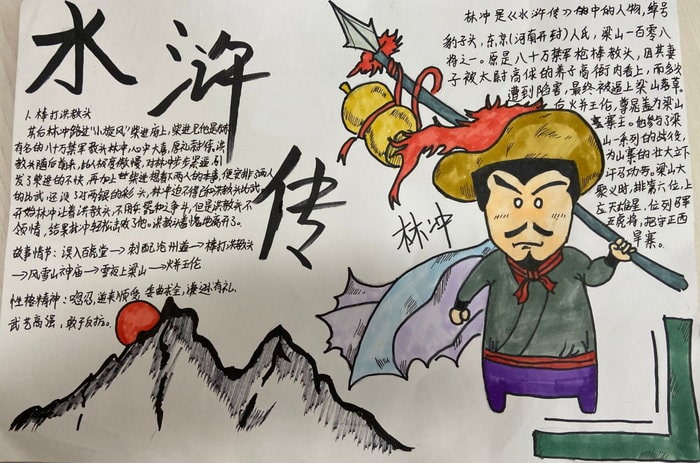 水浒传
1、棒打洪教头
其后林冲路过"小旋风"柴进庄上,柴进见他是赫赫
有名的八十万禁军教头林冲,心中大喜,厚礼款待,洪
教头随后前来,此人极度傲慢,对林冲步步紧逼,引
发了柴进的不快,再加上柴进想看二人的本事,便安排了两人
的比武,还设了25两银的彩头,林冲迫不得已和洪教头比武,
开始林冲让着洪教头,不用兵器和之争斗,但是洪教头不
领情,结果林冲轻松击败了他。洪教头羞愧地离开了。
故事情节:误入白虎堂→刺配沧州道→棒打洪教头
→风雪山神庙→雪夜上梁山→火并王伦
性格精神:隐忍、逆来顺受、委曲求全、谦逊有礼、
武艺高强,敢于反抗。
林冲是《水浒传》中的人物,绰号
豹子头,东京(河南开封)人氏,梁山一百零八
将之一。原是八十万禁军枪棒教头,因其妻
子被太尉高俅的养子高衙内看上,而多次
遭到陷害,最终被逼上梁山落草。
后火并王伦,尊晁盖为梁山
寨寨主。他参与了梁
山一系列的战役,
为山寨的壮大立下
汗马功劳。梁山大
聚义时,排第六位,上
应天雄星,位列马军
五虎将,把守正西
旱寨。
林冲